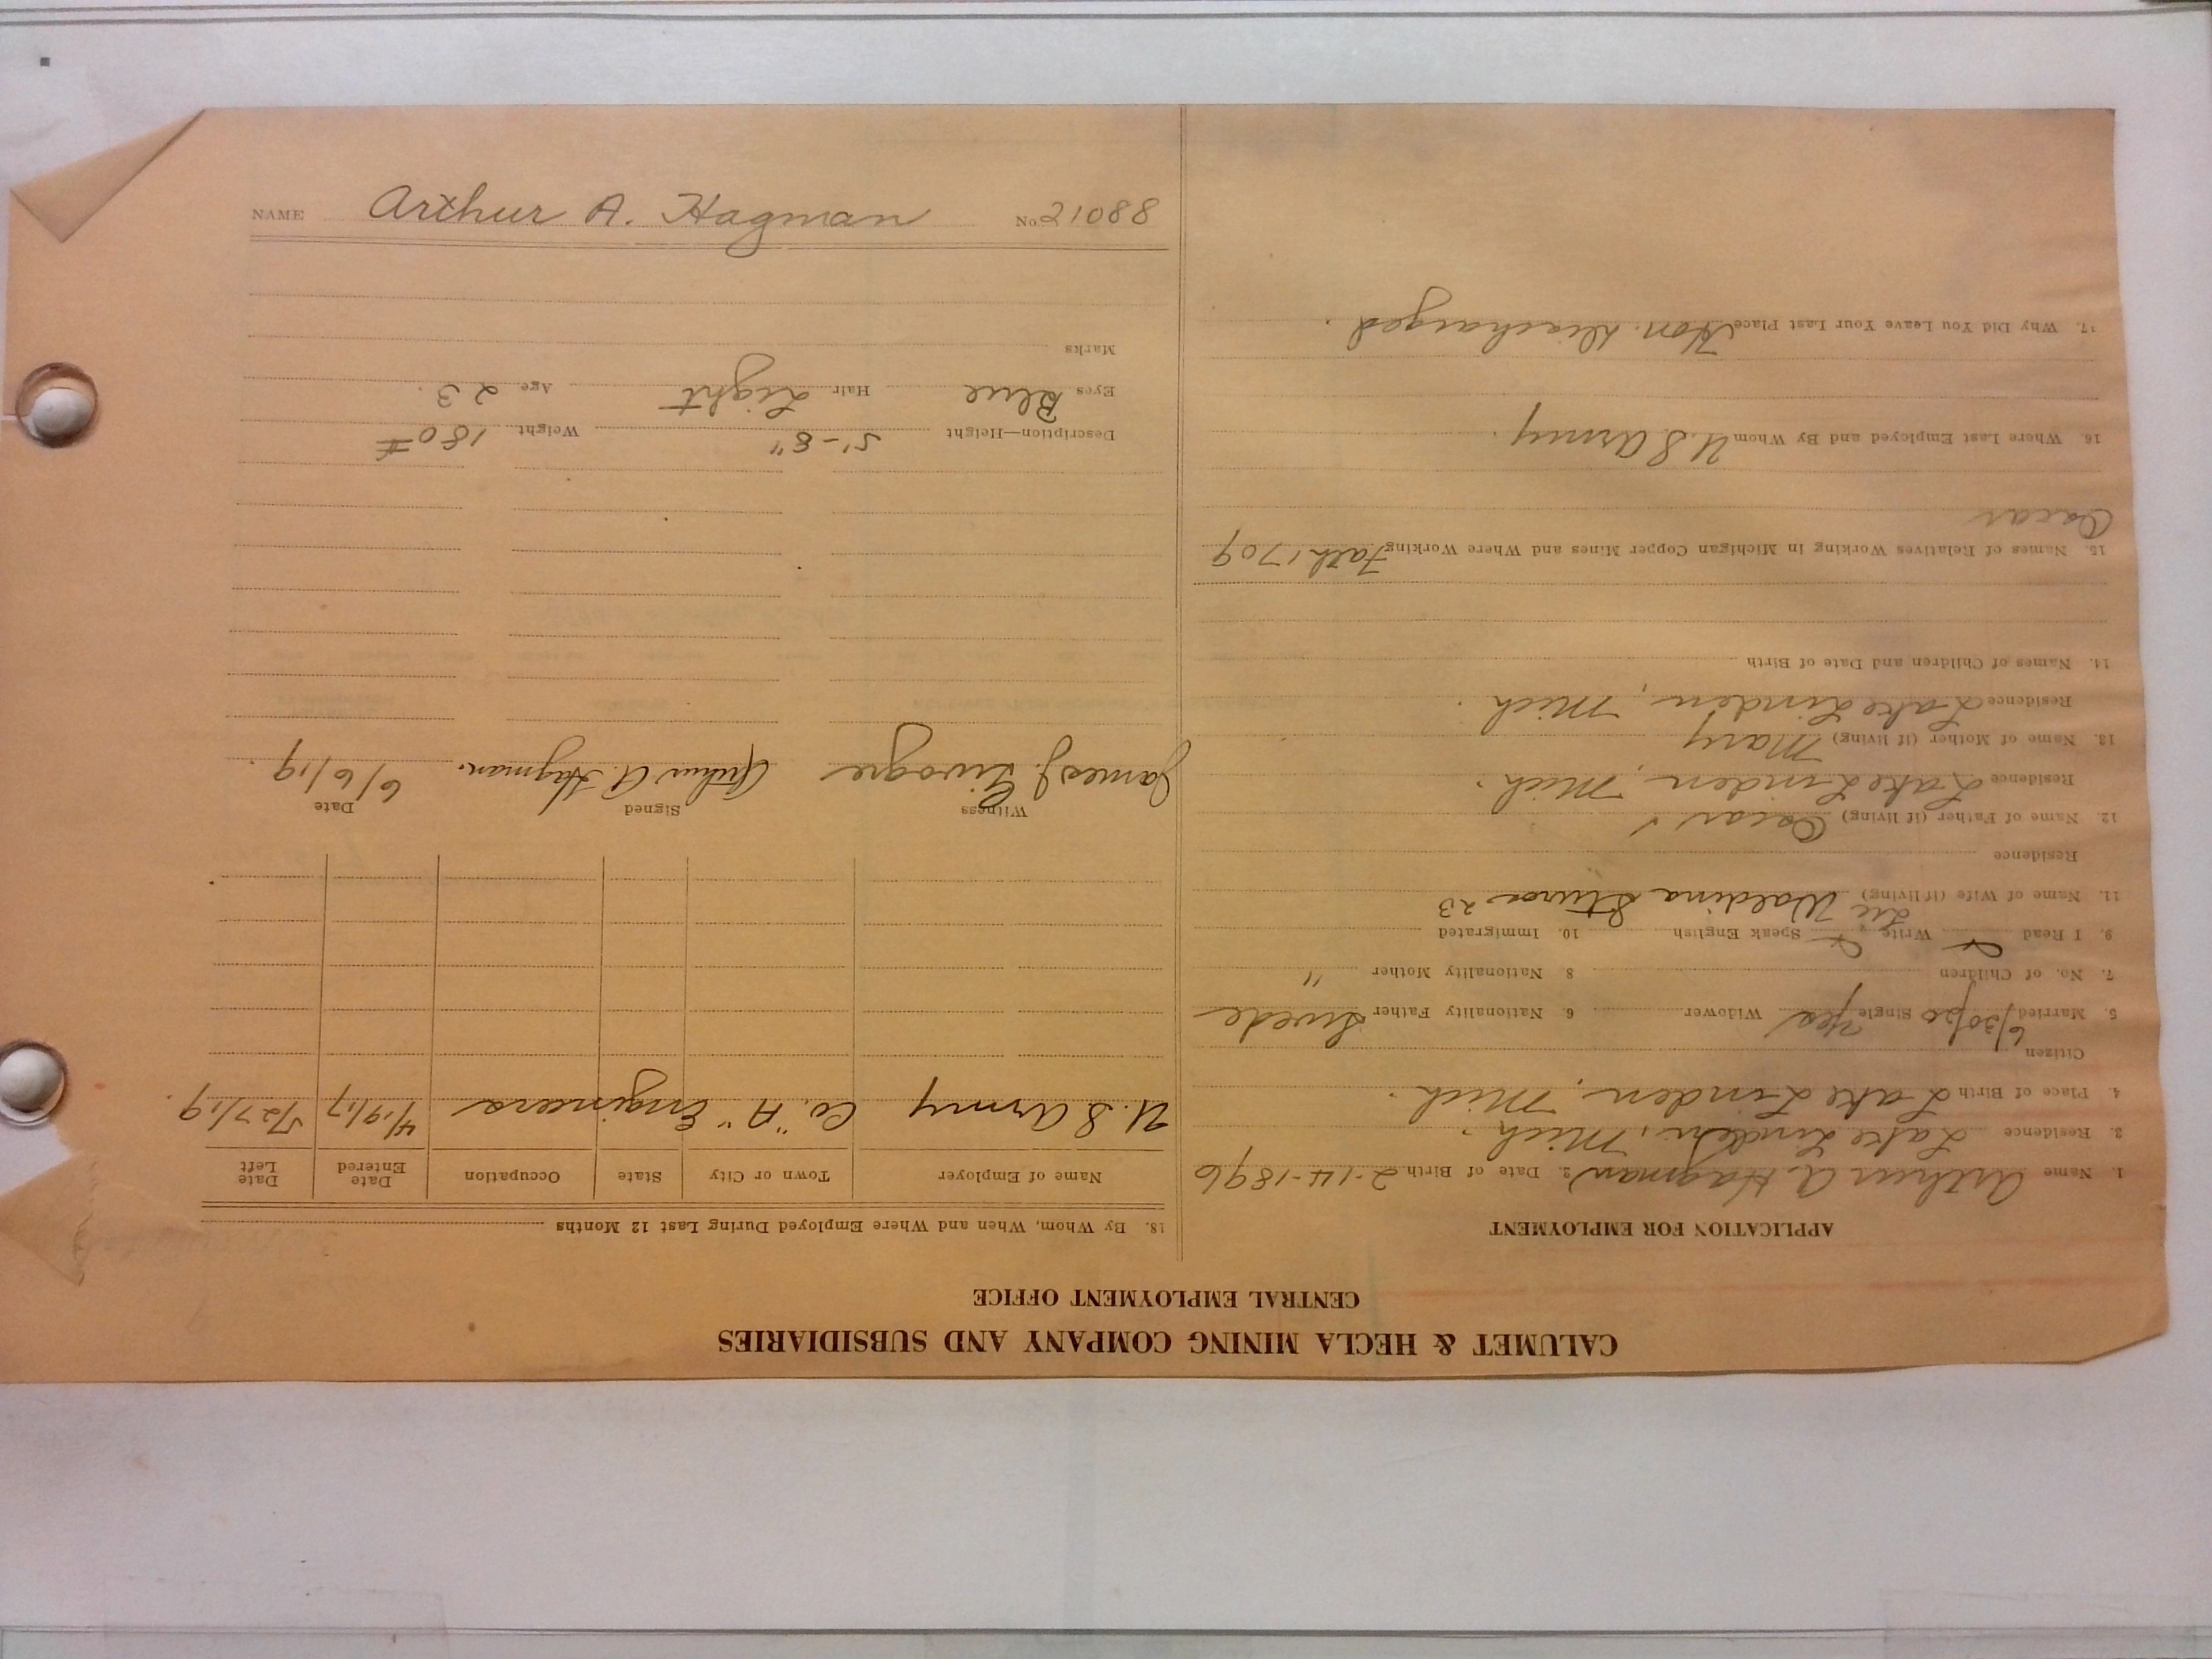 CALUMET & HECLA MINING COMPANY AND SUBSIDIARIES
CENTRAL EMPLOYMENT OFFICE
APPLICATION FOR EMPLOYMENT
1. Name Arthur A. Hagman 2. Date of Birth 2-14-1896
3. Residence Lake Linden, Mich.
4. Place of Birth Lake Linden, Mich.
Citizen
5. Married 6/30/20 Single Yes Widower 6. Nationality Father Swede
7. No. of Children 8 Nationality Mother "
9. I Read Write Speak English 10. Immigrated
11. Name of Wife (if living) Waldina 23
Residence
12. Name of Father (if living) Oscar ✓
Residence Lake Linden, Mich.
13. Name of Mother (if living) Mary
Residence Lake Linden, Mich.
14. Names of Children and Date of Birth
15. Names of Relatives Working in Michigan Copper Mines and Where Working Fath 1709
Oscar
16. Where Last Employed and By Whom U.S Army.
17. Why Did You Leave Your Last Place Hon. Discharged.
18. By Whom, When and Where Employed During Last 12 Months
Name of Employer Town or City State Occupation Date Entered Date Left
U.S Army Co. "A" Engineers 4/19/17 5/27/19.
Witness Signed Date
James J. Arthur A. Hagman. 6/6/19.
Description—Height 5'-8" Weight 180#
Eyes Blue Hair Light Age 23.
Marks
NAME Arthur A. Hagman No. 88012